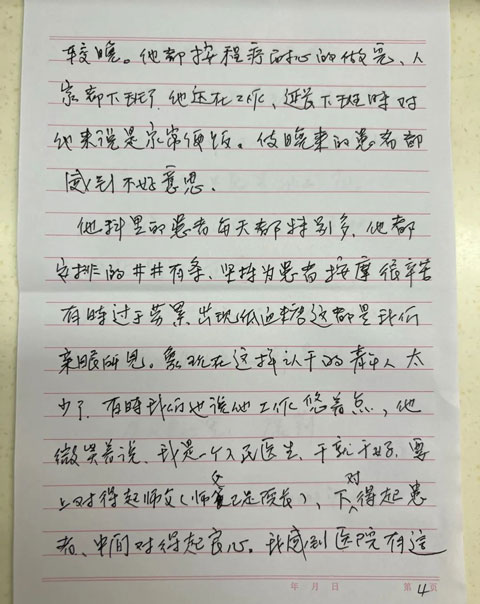 较晚。他都按程序耐心的做完、人
家都下班了他还在工作，延长下班时对
他来说是家常便饭。使晚来的患者都
感到不好意思.
他科里的患者每天都特别多，他都
安排的井井有条、坚持为患者按摩很辛苦
有时过于劳累出现低血糖这都是我们
亲眼所见。象现在这样认干的青年人太
少了.有时我们也说他工作悠着点，他
微笑着说、我是一个人民医生、干就干好、要
上对得起师父（师父已是院长），下对得起患
者、中间对得起良心。我感到医院有这
年 月 日
第4页